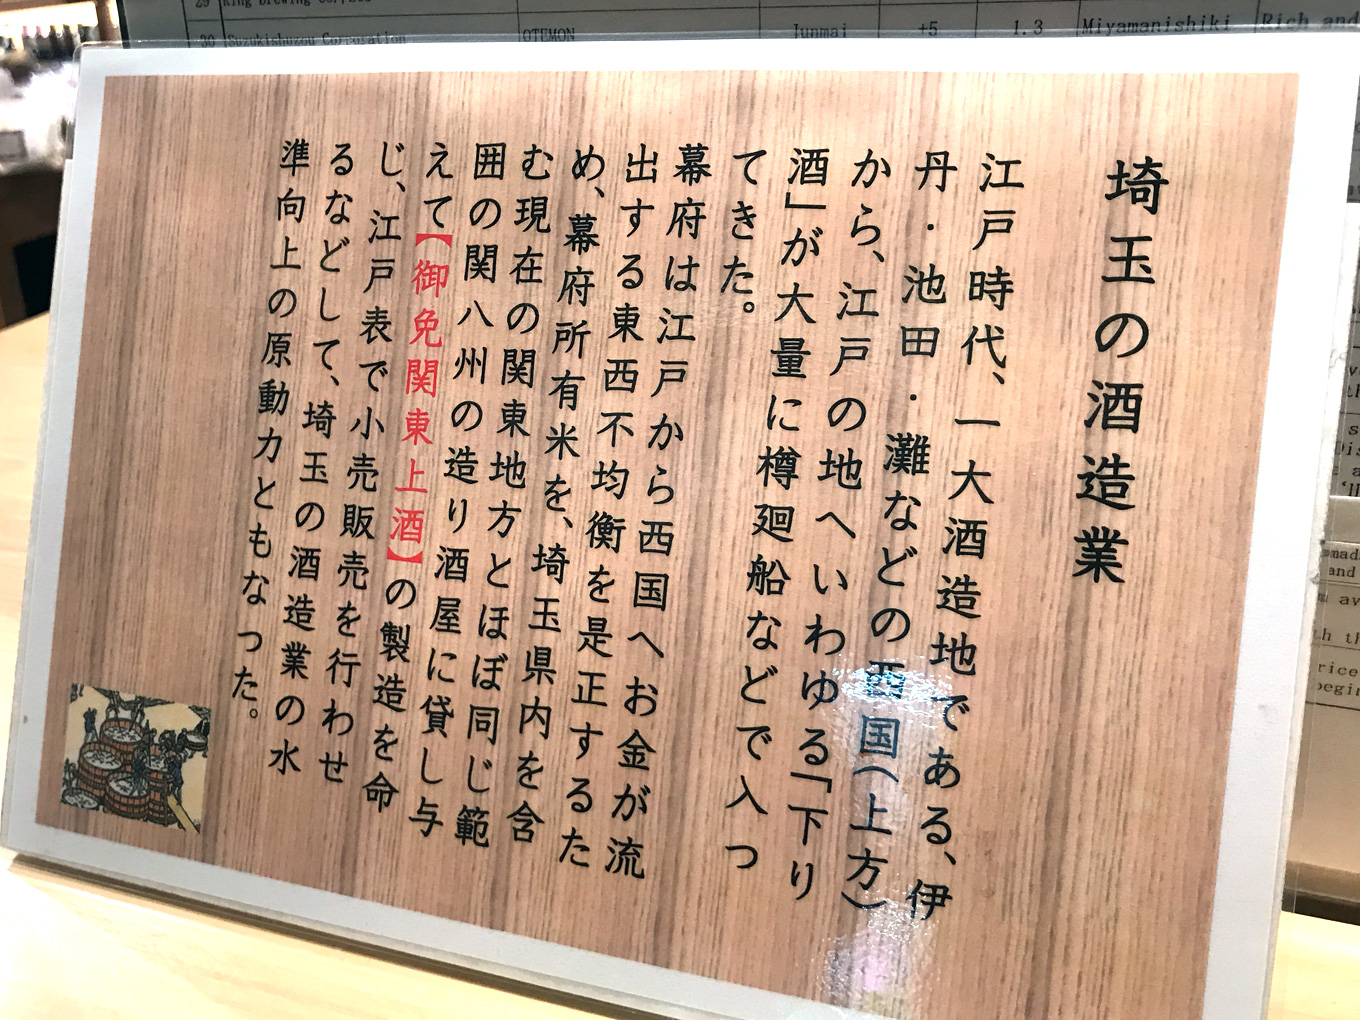 埼玉の酒造業
江戸時代、一大酒造地である、伊
丹・池田・灘などの西国(上方)
から、江戸の地へいわゆる「下り
酒」が大量に樽廻船などで入っ
てきた。
幕府は江戸から西国へお金が流
出する東西不均衡を是正するた
め、幕府所有米を、埼玉県内を含
む現在の関東地方とほぼ同じ範
囲の関八州の造り酒屋に貸し与
えて【御免関東上酒】の製造を命
じ、江戸表で小売販売を行わせ
るなどして、埼玉の酒造業の水
準向上の原動力ともなった。
30 Suzukishuzou Corporation OTEMON Junmai +5 1.3 Miyamanishiki Rich and